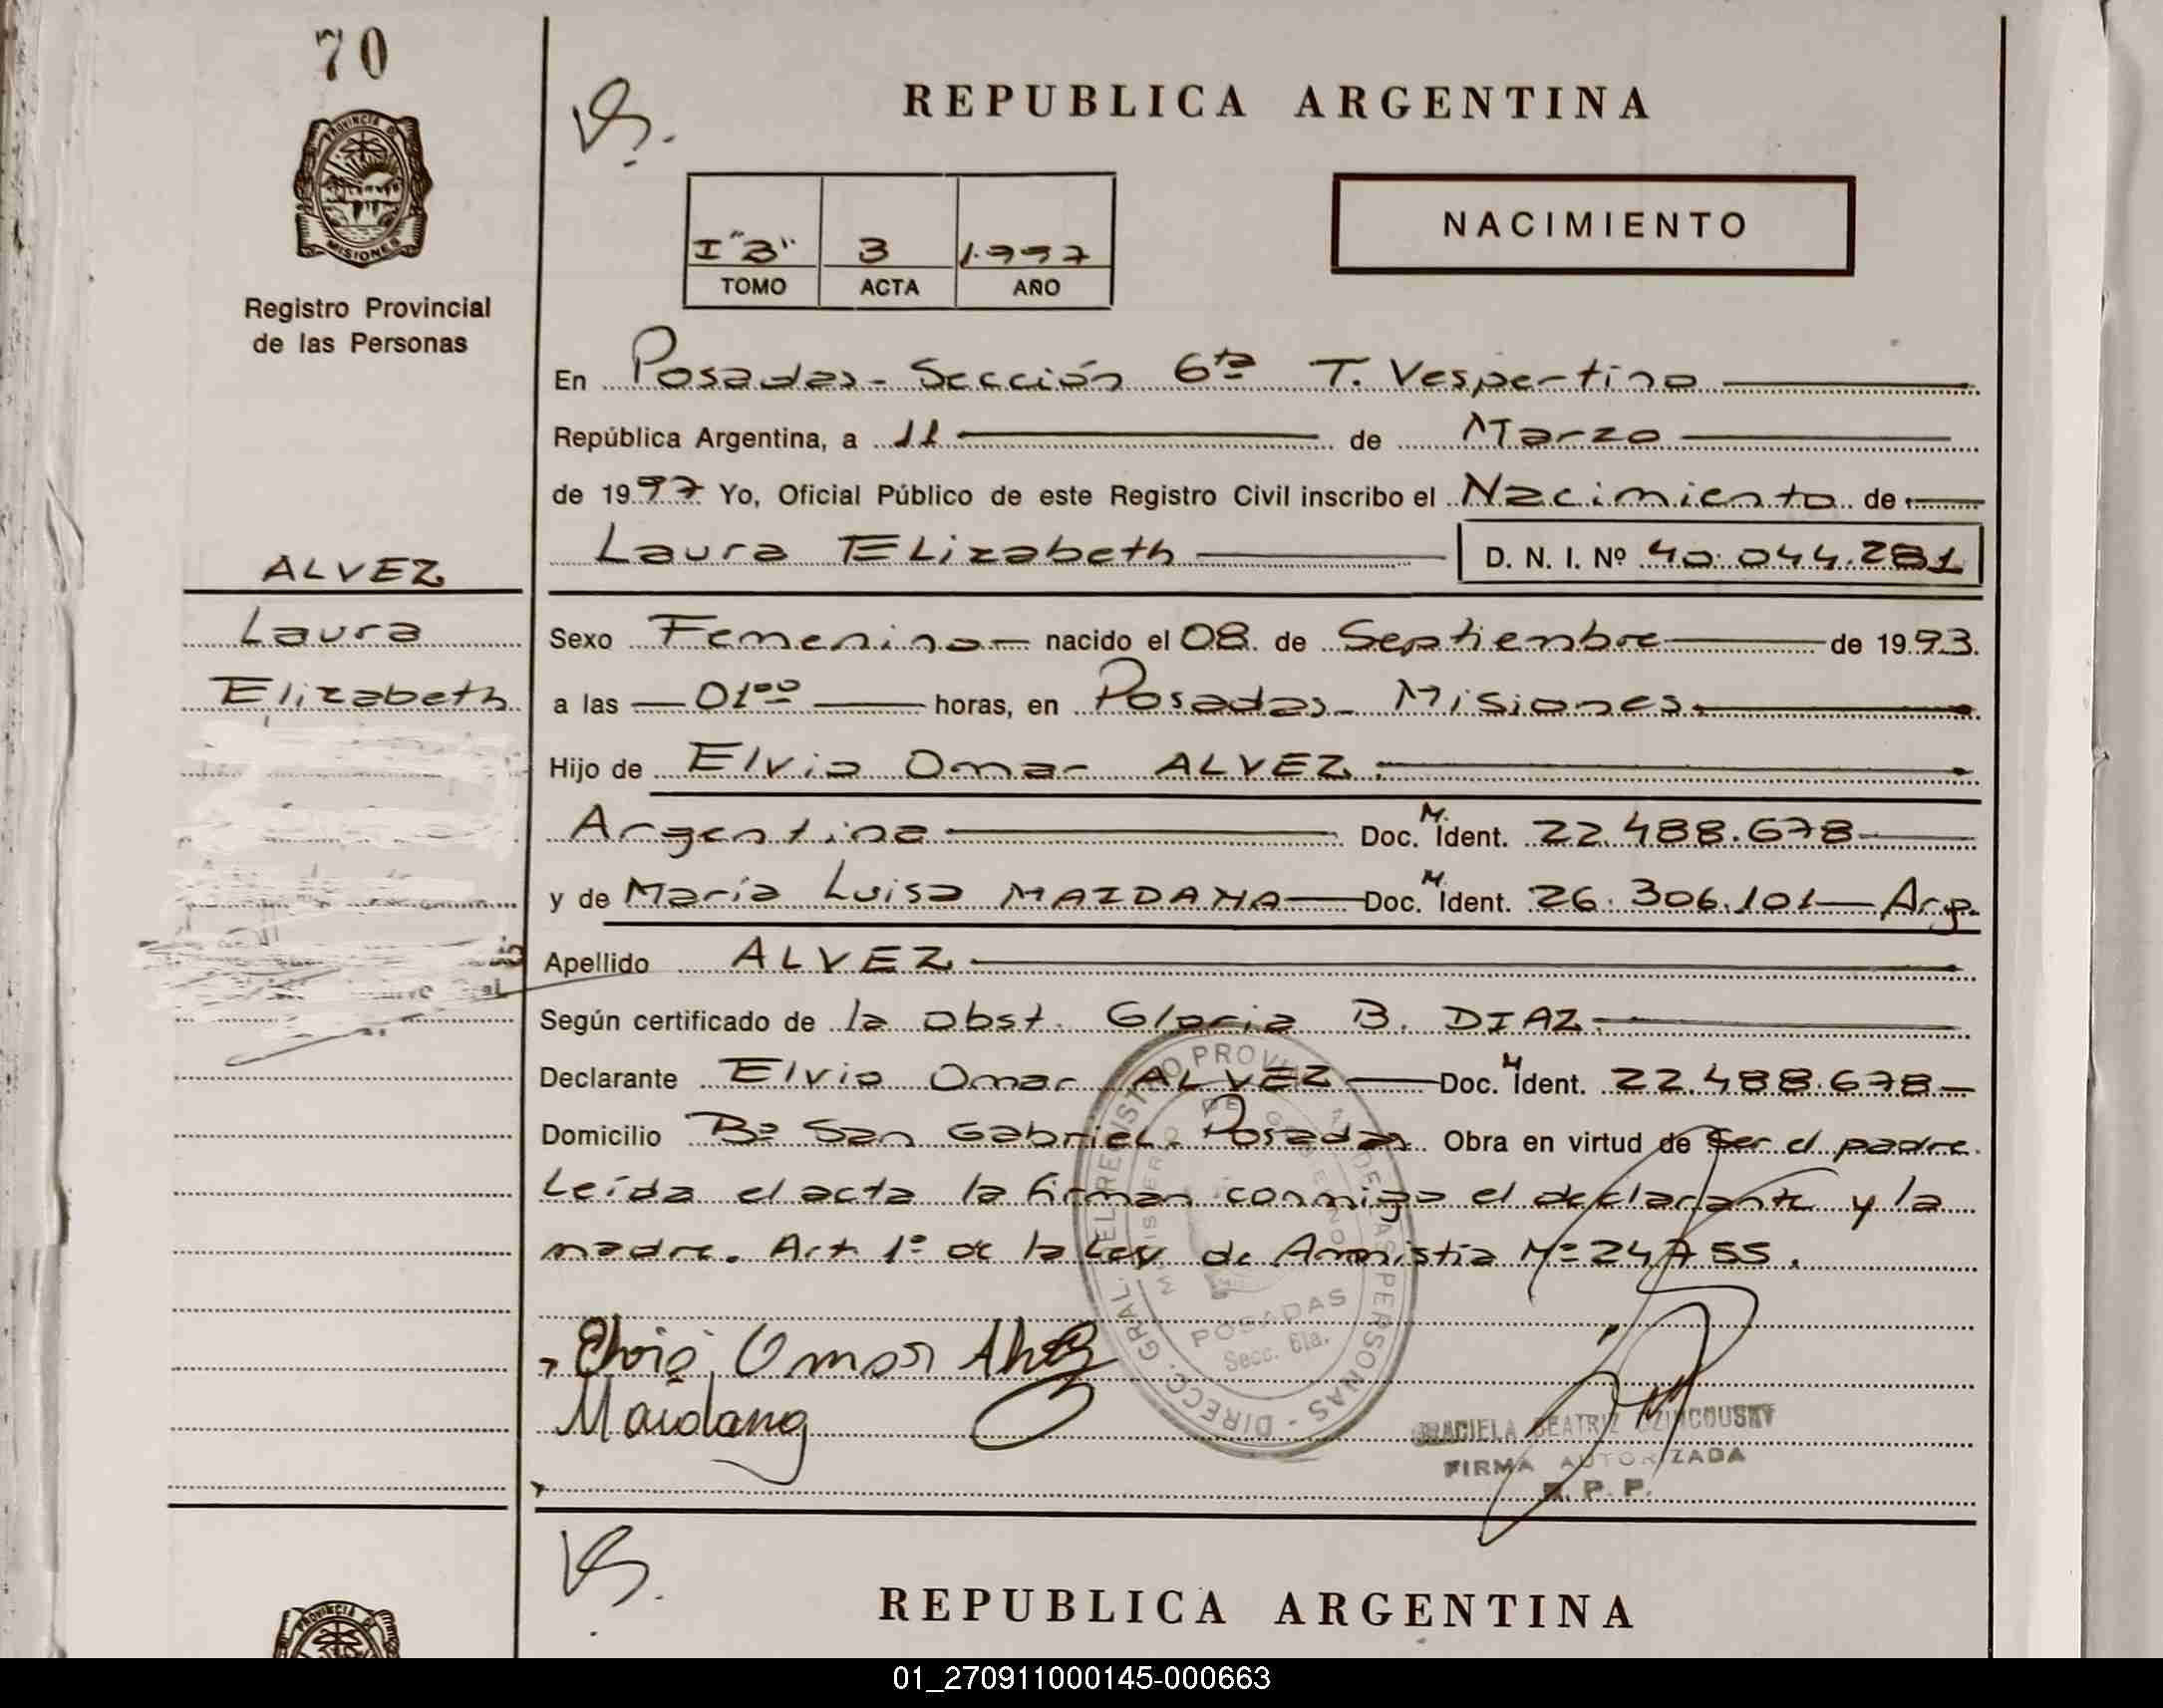 70
REPUBLICA ARGENTINA
PROVINCIA DE
MISIONES
Registro Provincial
de las Personas
I "B" 3 1.997
TOMO ACTA AÑO
NACIMIENTO
En Posadas - Sección 6ta T. Vespertino
República Argentina, a 11 de Marzo
de 1997 Yo, Oficial Público de este Registro Civil inscribo el Nacimiento de
Laura ELizabeth D. N. I. Nº 40.044.281
ALVEZ
Laura
Elizabeth
Sexo Femenino nacido el 08 de Septiembre de 1993.
a las 01ºº horas, en Posadas - Misiones.
Hijo de Elvio Omar ALVEZ.
Argentina Doc. M. Ident. 22.488.678
y de María Luisa MAIDANA Doc. M. Ident. 26.306.101 - Arg.
Apellido ALVEZ
Según certificado de la obst. Gloria B. DIAZ.
Declarante Elvio Omar ALVEZ Doc. M Ident. 22.488.678
Domicilio Bº San Gabriel. Posadas. Obra en virtud de ser el padre.
Leída el acta la firman conmigo el declarante y la
madre. Art 1º de la Ley de Amnistía Nº 24755.
Elvio Omar Alvez
Maidana
DIRECC. GRAL. DEL REGISTRO PROVINCIAL DE LAS PERSONAS
MINISTERIO DE GOBIERNO
POSADAS
Secc. 6ta.
GRACIELA BEATRIZ
FIRMA AUTORIZADA
R. P. P.
REPUBLICA ARGENTINA
PROVINCIA DE
01_270911000145-000663